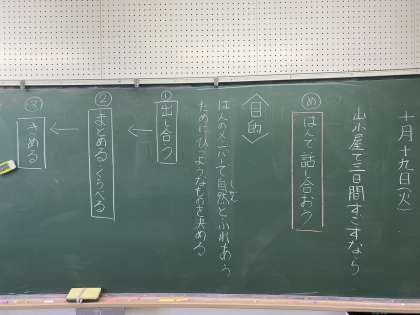 十月十九日(火)
山小屋で三日間すごすなら
め
はんで話し合おう
〈目的〉
はんのメンバーで自然としぜんふれあう
ためにひつようなものを決める
① 出し合う
←
② まとめる くらべる
←
③ きめる